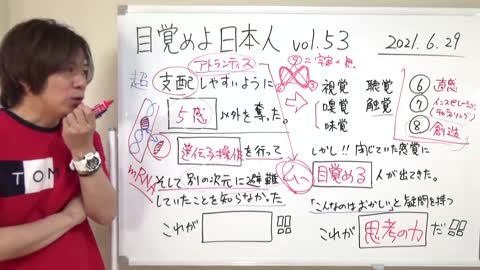 目覚めよ日本人 vol.53
2021.6.29
アトランティス
超
支配しやすいように
5感以外を奪った。
遺伝子操作を行って
mRNA
そして別の次元に避難
していたことを知らなかった
これが
視覚 聴覚
嗅覚 触覚
味覚
⑥ 直感
⑦ インスピレーション
(チャネリング)
⑧ 創造
しかし!! 閉じていた感覚に
目覚める人が出てきた。
「こんなのはおかしい」と疑問を持つ
これが思考の力だ!!
TOM